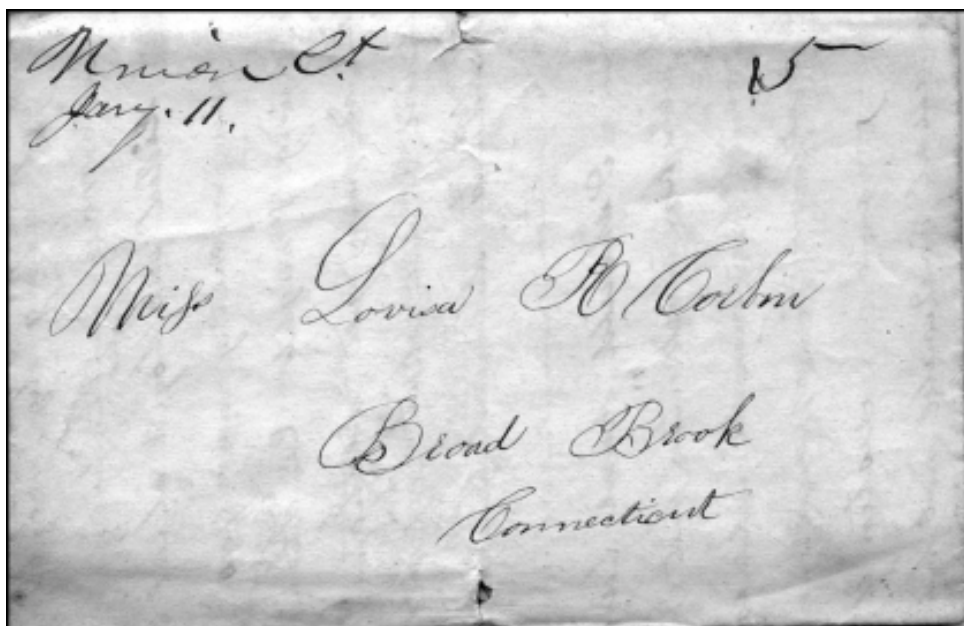 Union Ct 5
Jany. 11.
Miss Lovisa R Corbin
Broad Brook
Connecticut